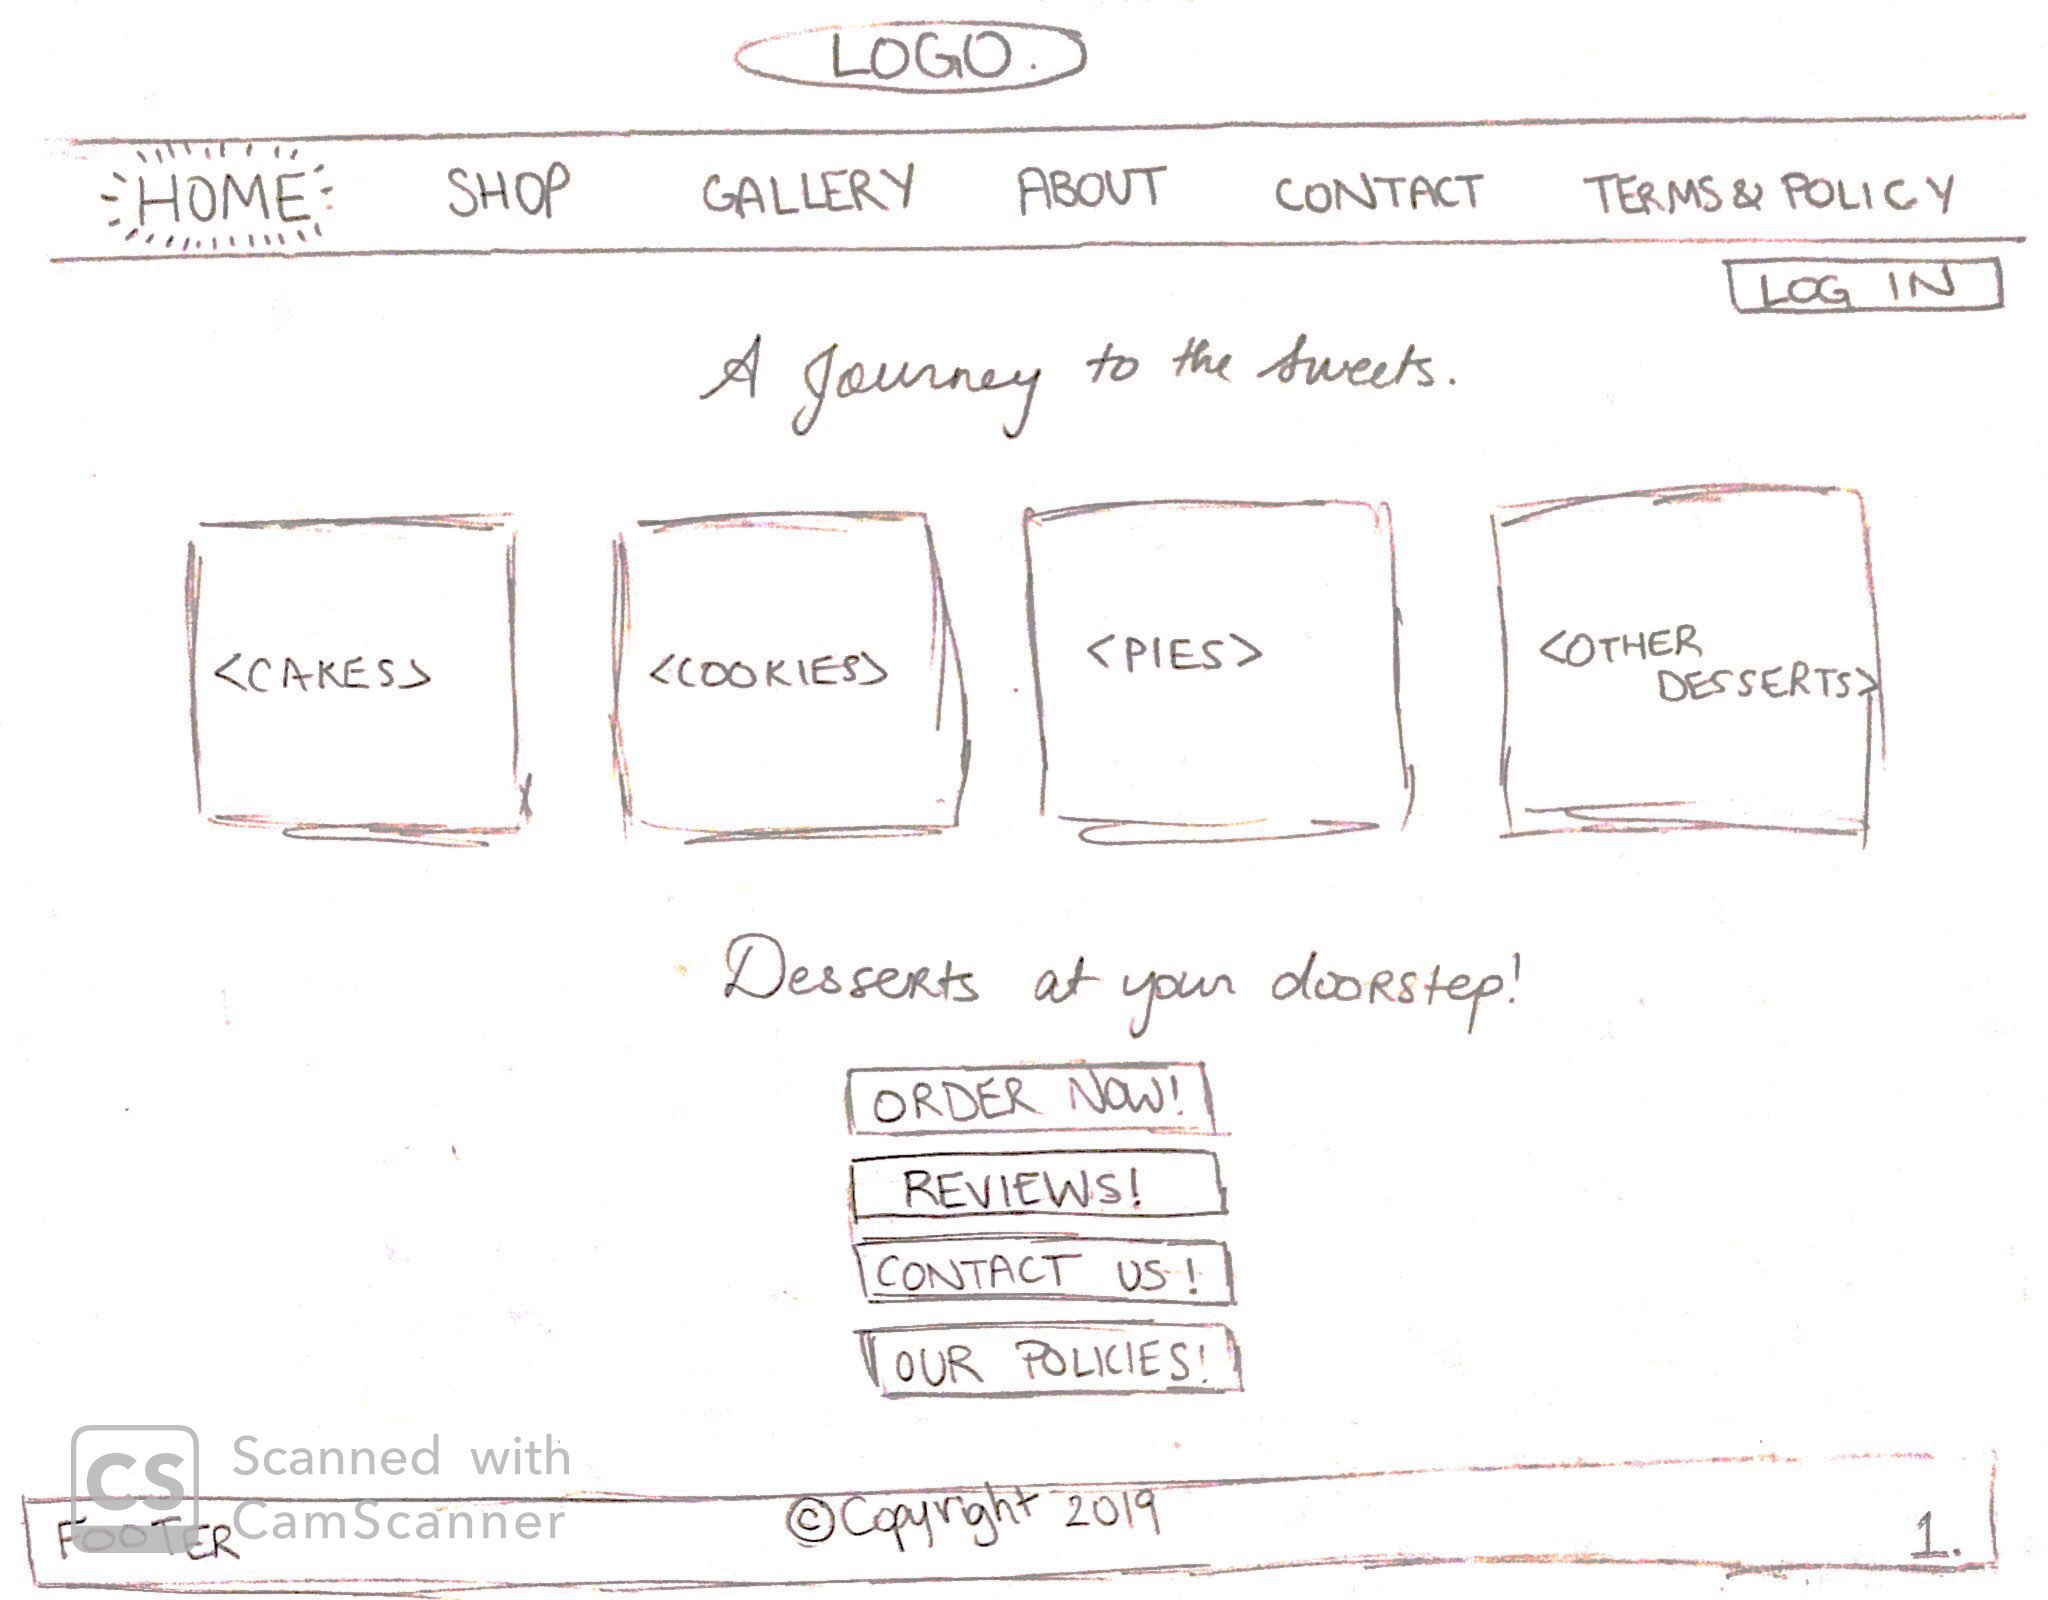 LOGO.
HOME SHOP GALLERY ABOUT CONTACT TERMS & POLICY
LOG IN
A Journey to the Sweets.
<CAKES> <COOKIES> <PIES> <OTHER
DESSERTS>
Desserts at your doorstep!
ORDER NOW!
REVIEWS!
CONTACT US!
OUR POLICIES!
CS Scanned with
CamScanner
FOOTER ©Copyright 2019 1.